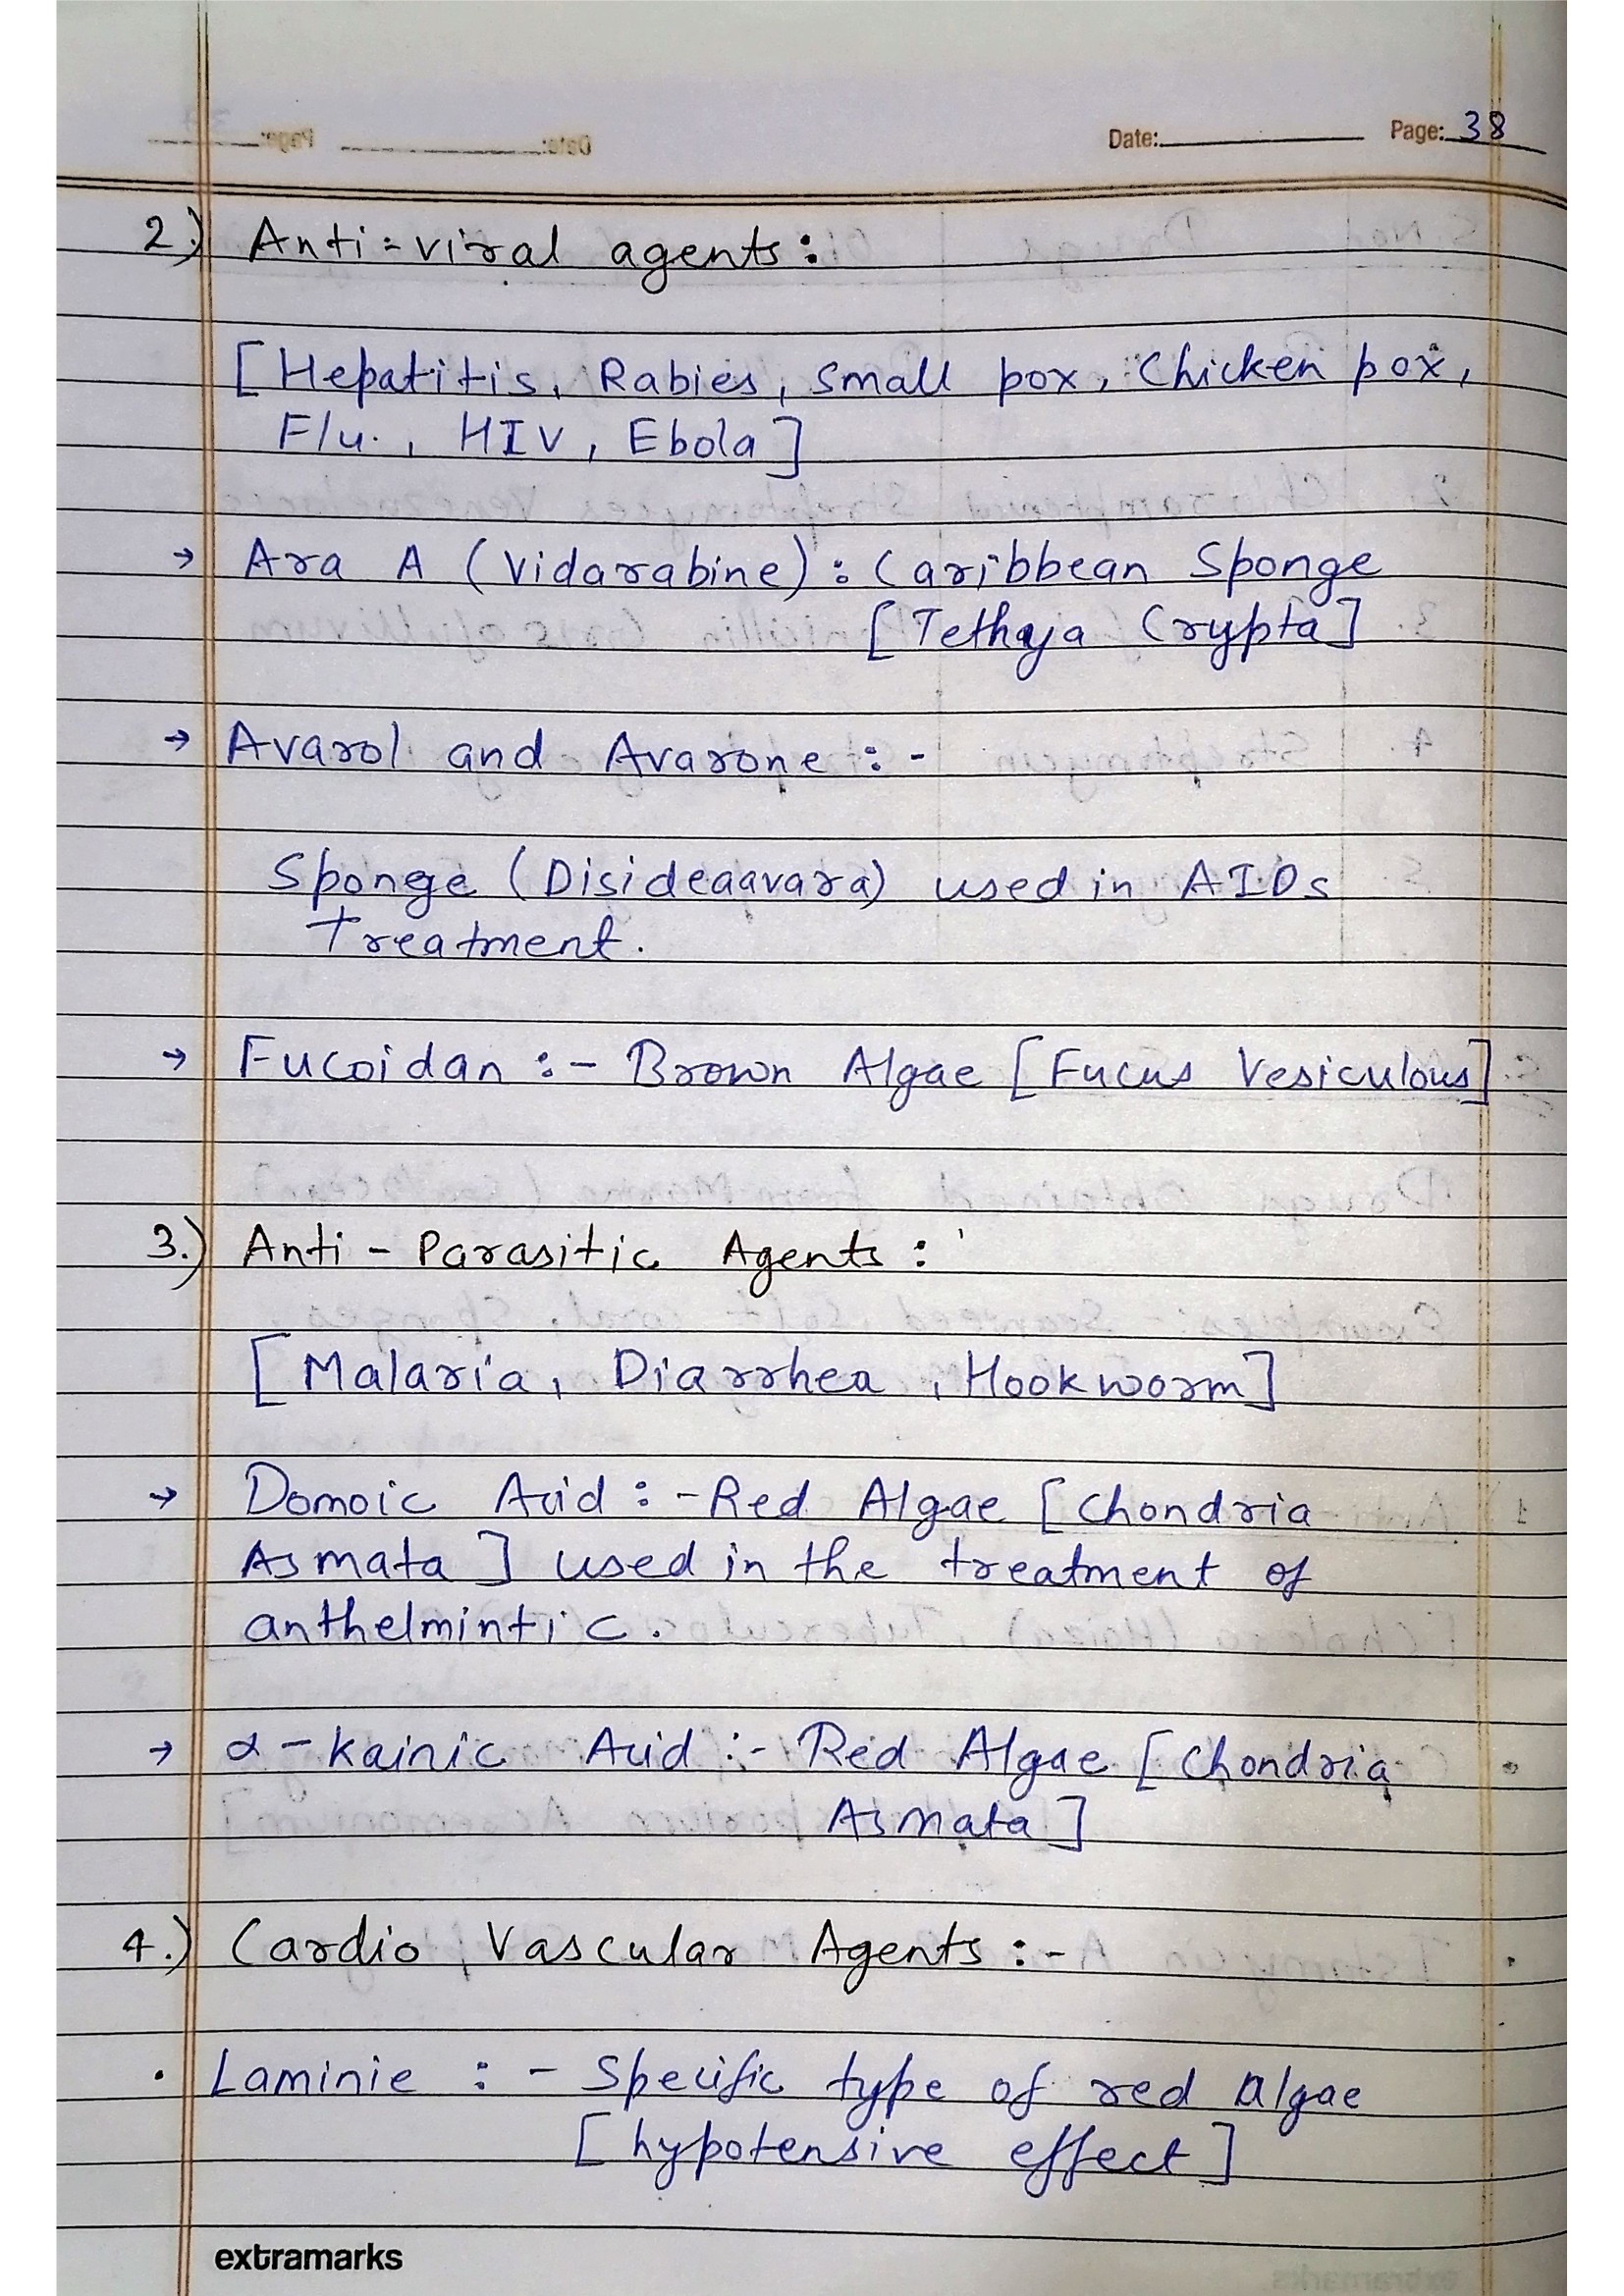 Date: Page: 38
2.) Anti-viral agents:
[Hepatitis, Rabies, small pox, Chicken pox,
Flu., HIV, Ebola]
→ Ara A (Vidarabine): Caribbean Sponge
[Tethaja Crypta]
→ Avarol and Avarone :-
Sponge (Disideaavara) used in AIDs
Treatment.
→ Fucoidan :- Brown Algae [Fucus Vesiculous]
3.) Anti-Parasitic Agents :
[Malaria, Diarrhea, Hookworm]
→ Domoic Acid :- Red Algae [Chondria
Asmata] used in the treatment of
anthelmintic.
→ α-kainic Acid :- Red Algae [Chondria
Asmata]
4.) Cardio Vascular Agents :-
• Laminie :- Specific type of red algae
[hypotensive effect]
extramarks